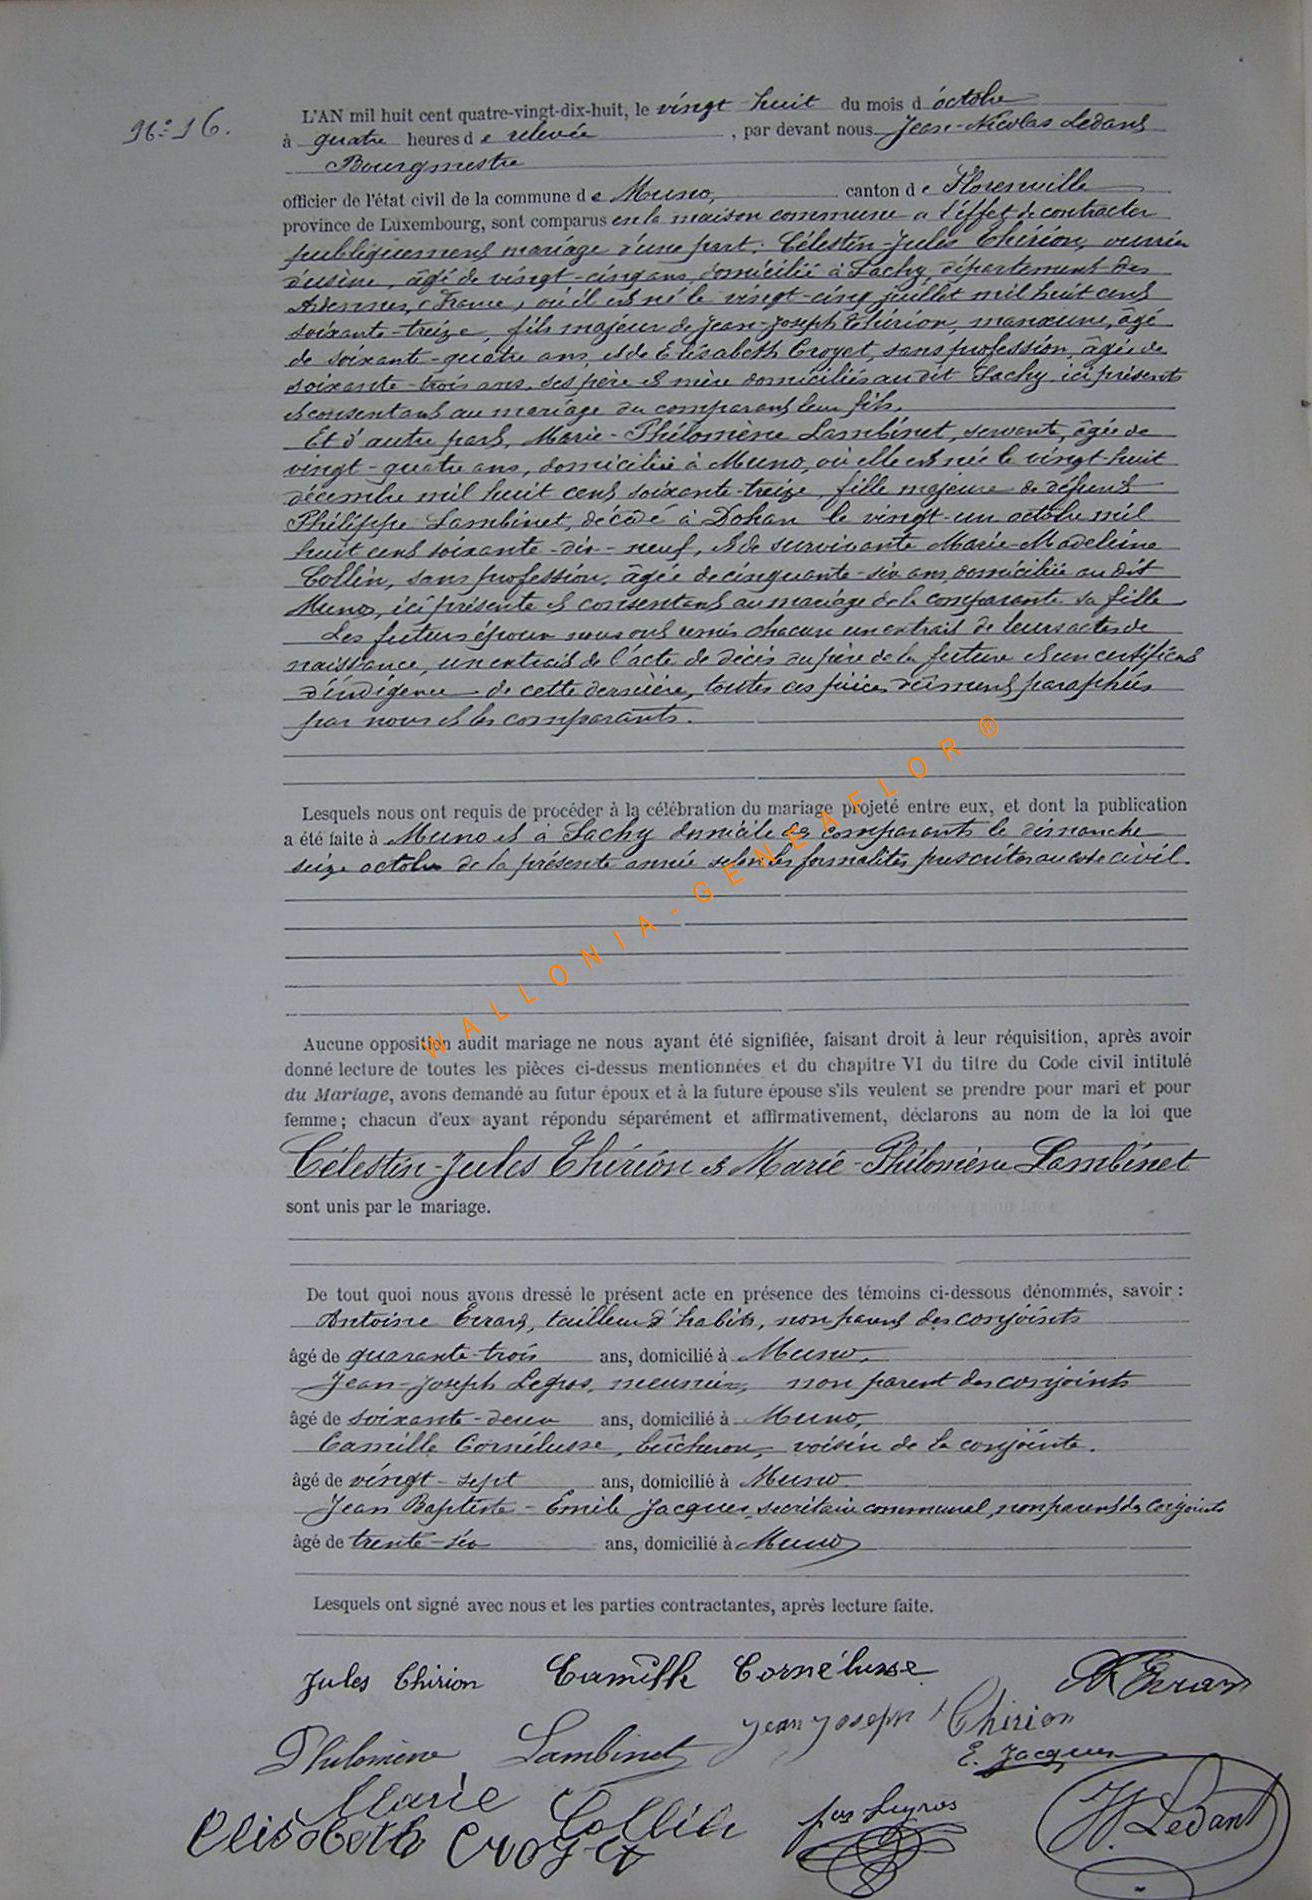 N° 16.
L'AN mil huit cent quatre-vingt-dix-huit, le vingt-huit du mois d'octobre
à quatre heures de relevée, par devant nous Jean-Nicolas Ledant
Bourgmestre
officier de l'état civil de la commune de Muno, canton de Florenville
province de Luxembourg, sont comparus en la maison commune à l'effet de contracter
publiquement mariage d'une part: Célestin-Jules Thirion, ouvrier
d'usine, âgé de vingt-cinq ans, domicilié à Sachy, département des
Ardennes, (France), où il est né le vingt-cinq juillet mil huit cent
soixante-treize, fils majeur de Jean-Joseph Thirion, manœuvre, âgé
de soixante-quatre ans et de Elisabeth Croyet, sans profession, âgée de
soixante-trois ans, ses père et mère domiciliés au dit Sachy ici présents
et consentant au mariage du comparant leur fils.
Et d'autre part, Marie-Philomène Lambinet, servante, âgée de
vingt-quatre ans, domiciliée à Muno, où elle est née le vingt-huit
décembre mil huit cent soixante-treize, fille majeure de défunt
Philippe Lambinet, décédé à Dohan le vingt-un octobre mil
huit cent soixante-dix-neuf, et de survivante Marie-Madeleine
Collin, sans profession, âgée de cinquante-six ans, domiciliée au dit
Muno, ici présente et consentant au mariage de la comparante sa fille
Les futurs époux nous ont remis chacun un extrait de leurs actes de
naissance, un extrait de l'acte de décès du père de la future et un certificat
d'indigence de cette dernière, toutes ces pièces dûment paraphées
par nous et les comparants.
Lesquels nous ont requis de procéder à la célébration du mariage projeté entre eux, et dont la publication
a été faite à Muno et à Sachy domicile des comparants le dimanche
seize octobre de la présente année selon les formalités prescrites au code civil.
Aucune opposition audit mariage ne nous ayant été signifiée, faisant droit à leur réquisition, après avoir
donné lecture de toutes les pièces ci-dessus mentionnées et du chapitre VI du titre du Code civil intitulé
du Mariage, avons demandé au futur époux et à la future épouse s'ils veulent se prendre pour mari et pour
femme; chacun d'eux ayant répondu séparément et affirmativement, déclarons au nom de la loi que
Célestin-Jules Thirion et Marie-Philomène Lambinet
sont unis par le mariage.
De tout quoi nous avons dressé le présent acte en présence des témoins ci-dessous dénommés, savoir:
Antoine Errard, tailleur d'habits, non parent des conjoints
âgé de quarante-trois ans, domicilié à Muno,
Jean-Joseph Legros, meunier, non parent des conjoints
âgé de soixante-deux ans, domicilié à Muno,
Camille Cornélusse, bûcheron, voisin de la conjointe.
âgé de vingt-sept ans, domicilié à Muno.
Jean Baptiste-Emile Jacques, secrétaire communal, non parent des conjoints
âgé de trente-six ans, domicilié à Muno
Lesquels ont signé avec nous et les parties contractantes, après lecture faite.
Jules Thirion Camille Cornélusse A Errard
Philomène Lambinet Jean Joseph Thirion
E. Jacques
Marie Collin
Elisabeth Croyet Legros Ledant
WALLONIA-GENEAFLOR ®